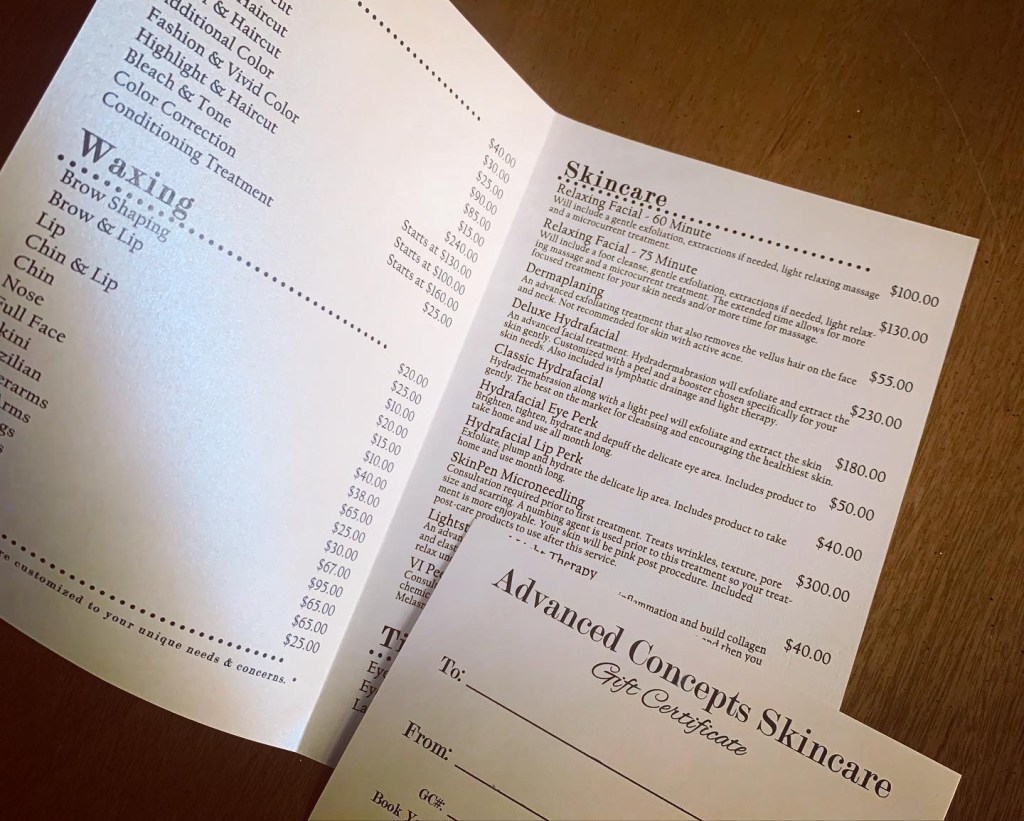 Haircut
& Haircut
Additional Color
Fashion & Vivid Color
Highlight & Haircut
Bleach & Tone
Color Correction
Conditioning Treatment
$40.00
$30.00
$25.00
$90.00
$85.00
$15.00
$240.00
Starts at $130.00
Starts at $100.00
Starts at $160.00
$25.00
Waxing
Brow Shaping
Brow & Lip
Lip
Chin & Lip
Chin
Nose
Full Face
$20.00
$25.00
$10.00
$20.00
$15.00
$10.00
$40.00
$38.00
$65.00
$25.00
$30.00
$67.00
$95.00
$65.00
$65.00
$25.00
customized to your unique needs & concerns. *
Skincare
Relaxing Facial - 60 Minute
Will include a gentle exfoliation, extractions if needed, light relaxing massage
and a microcurrent treatment.
$100.00
Relaxing Facial - 75 Minute
Will include a foot cleanse, gentle exfoliation, extractions if needed, light relax-
ing massage and a microcurrent treatment. The extended time allows for more
focused treatment for your skin needs and/or more time for massage.
$130.00
Dermaplaning
An advanced exfoliating treatment that also removes the vellus hair on the face
and neck. Not recommended for skin with active acne.
$55.00
Deluxe Hydrafacial
An advanced facial treatment. Hydradermabrasion will exfoliate and extract the
skin gently. Customized with a peel and a booster chosen specifically for your
skin needs. Also included is lymphatic drainage and light therapy.
$230.00
Classic Hydrafacial
Hydradermabrasion along with a light peel will exfoliate and extract the skin
gently. The best on the market for cleansing and encouraging the healthiest skin.
$180.00
Hydrafacial Eye Perk
Brighten, tighten, hydrate and depuff the delicate eye area. Includes product to
take home and use all month long.
$50.00
Hydrafacial Lip Perk
Exfoliate, plump and hydrate the delicate lip area. Includes product to take
home and use month long.
$40.00
SkinPen Microneedling
Consultation required prior to first treatment. Treats wrinkles, texture, pore
size and scarring. A numbing agent is used prior to this treatment so your treat-
ment is more enjoyable. Your skin will be pink post procedure. Included
post-care products to use after this service.
$300.00
Therapy
An
inflammation and build collagen
and
and then you
relax
$40.00
VI
Advanced Concepts Skincare
Gift Certificate
To:
From:
GC#:
Book